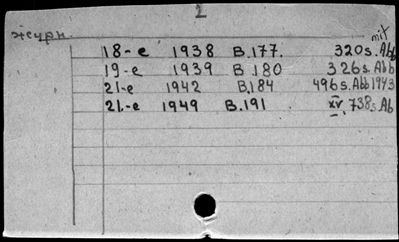 2
журн.
mit
18-e 1938 B.177. 320s. Abb
19-e 1939 B.180 326s. Abb
21-e 1942 B.184 496s. Abb 1943
21-e 1949 B.191 XV, 738s. Ab